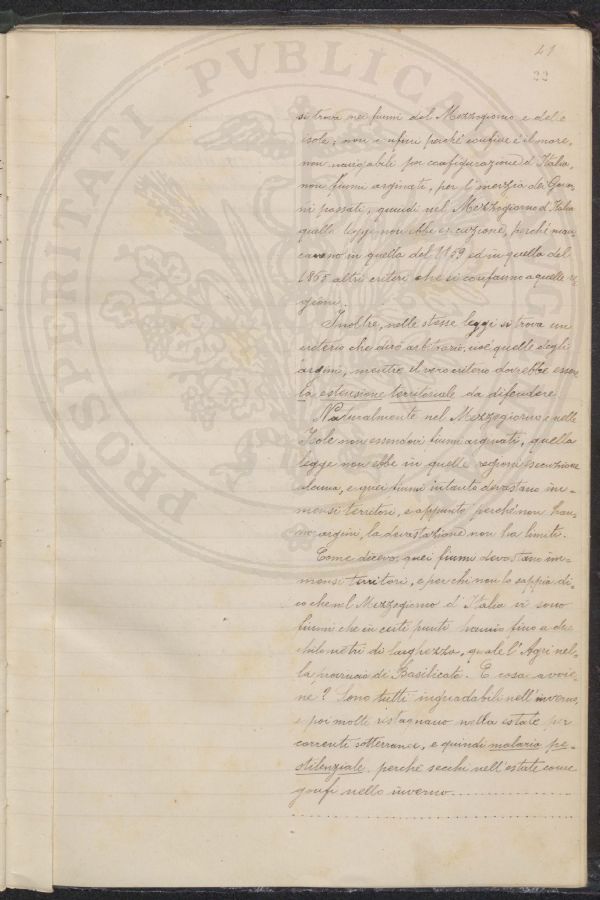 41
22
si trova nei fiumi del Mezzogiorno e delle
isole; non confini perché confine è il mare,
non navigabili per configurazione d'Italia,
non fiumi arginati, per l'inerzia dei Gover-
ni passati, quindi nel Mezzogiorno d'Italia
quella legge non ebbe esecuzione, perché man-
cavano in quella del 1859 ed in quella del
1865 altri criteri che si confanno a quelle re-
gioni.
Inoltre, nelle stesse leggi si trova un
criterio che dirò arbitrario, cioè quello degli
argini, mentre il vero criterio dovrebbe essere
la estensione territoriale da difendere
Naturalmente nel Mezzogiorno e nelle
Isole non essendovi fiumi arginati, quella
legge non ebbe in quelle regioni esecuzione
alcuna, e quei fiumi intanto devastano im-
mensi territori, e appunto perché non han-
no argini, la devastazione non ha limiti.
Come dicevo, quei fiumi devastano im-
mensi territori, e per chi non lo sappia di-
co che nel Mezzogiorno d'Italia vi sono
fiumi che in certi punti hanno fino a due
chilometri di larghezza, quale l'Agri nel-
la provincia di Basilicata. E cosa avvie-
ne? Sono tutti inguadabili nell'inverno,
e poi molti ristagnano nella estate per
correnti sotterranee, e quindi malaria pe-
stilenziale, perché secchi nell'estate come
gonfi nello inverno.................
....................................
PROSPERITATI PVBLICAE